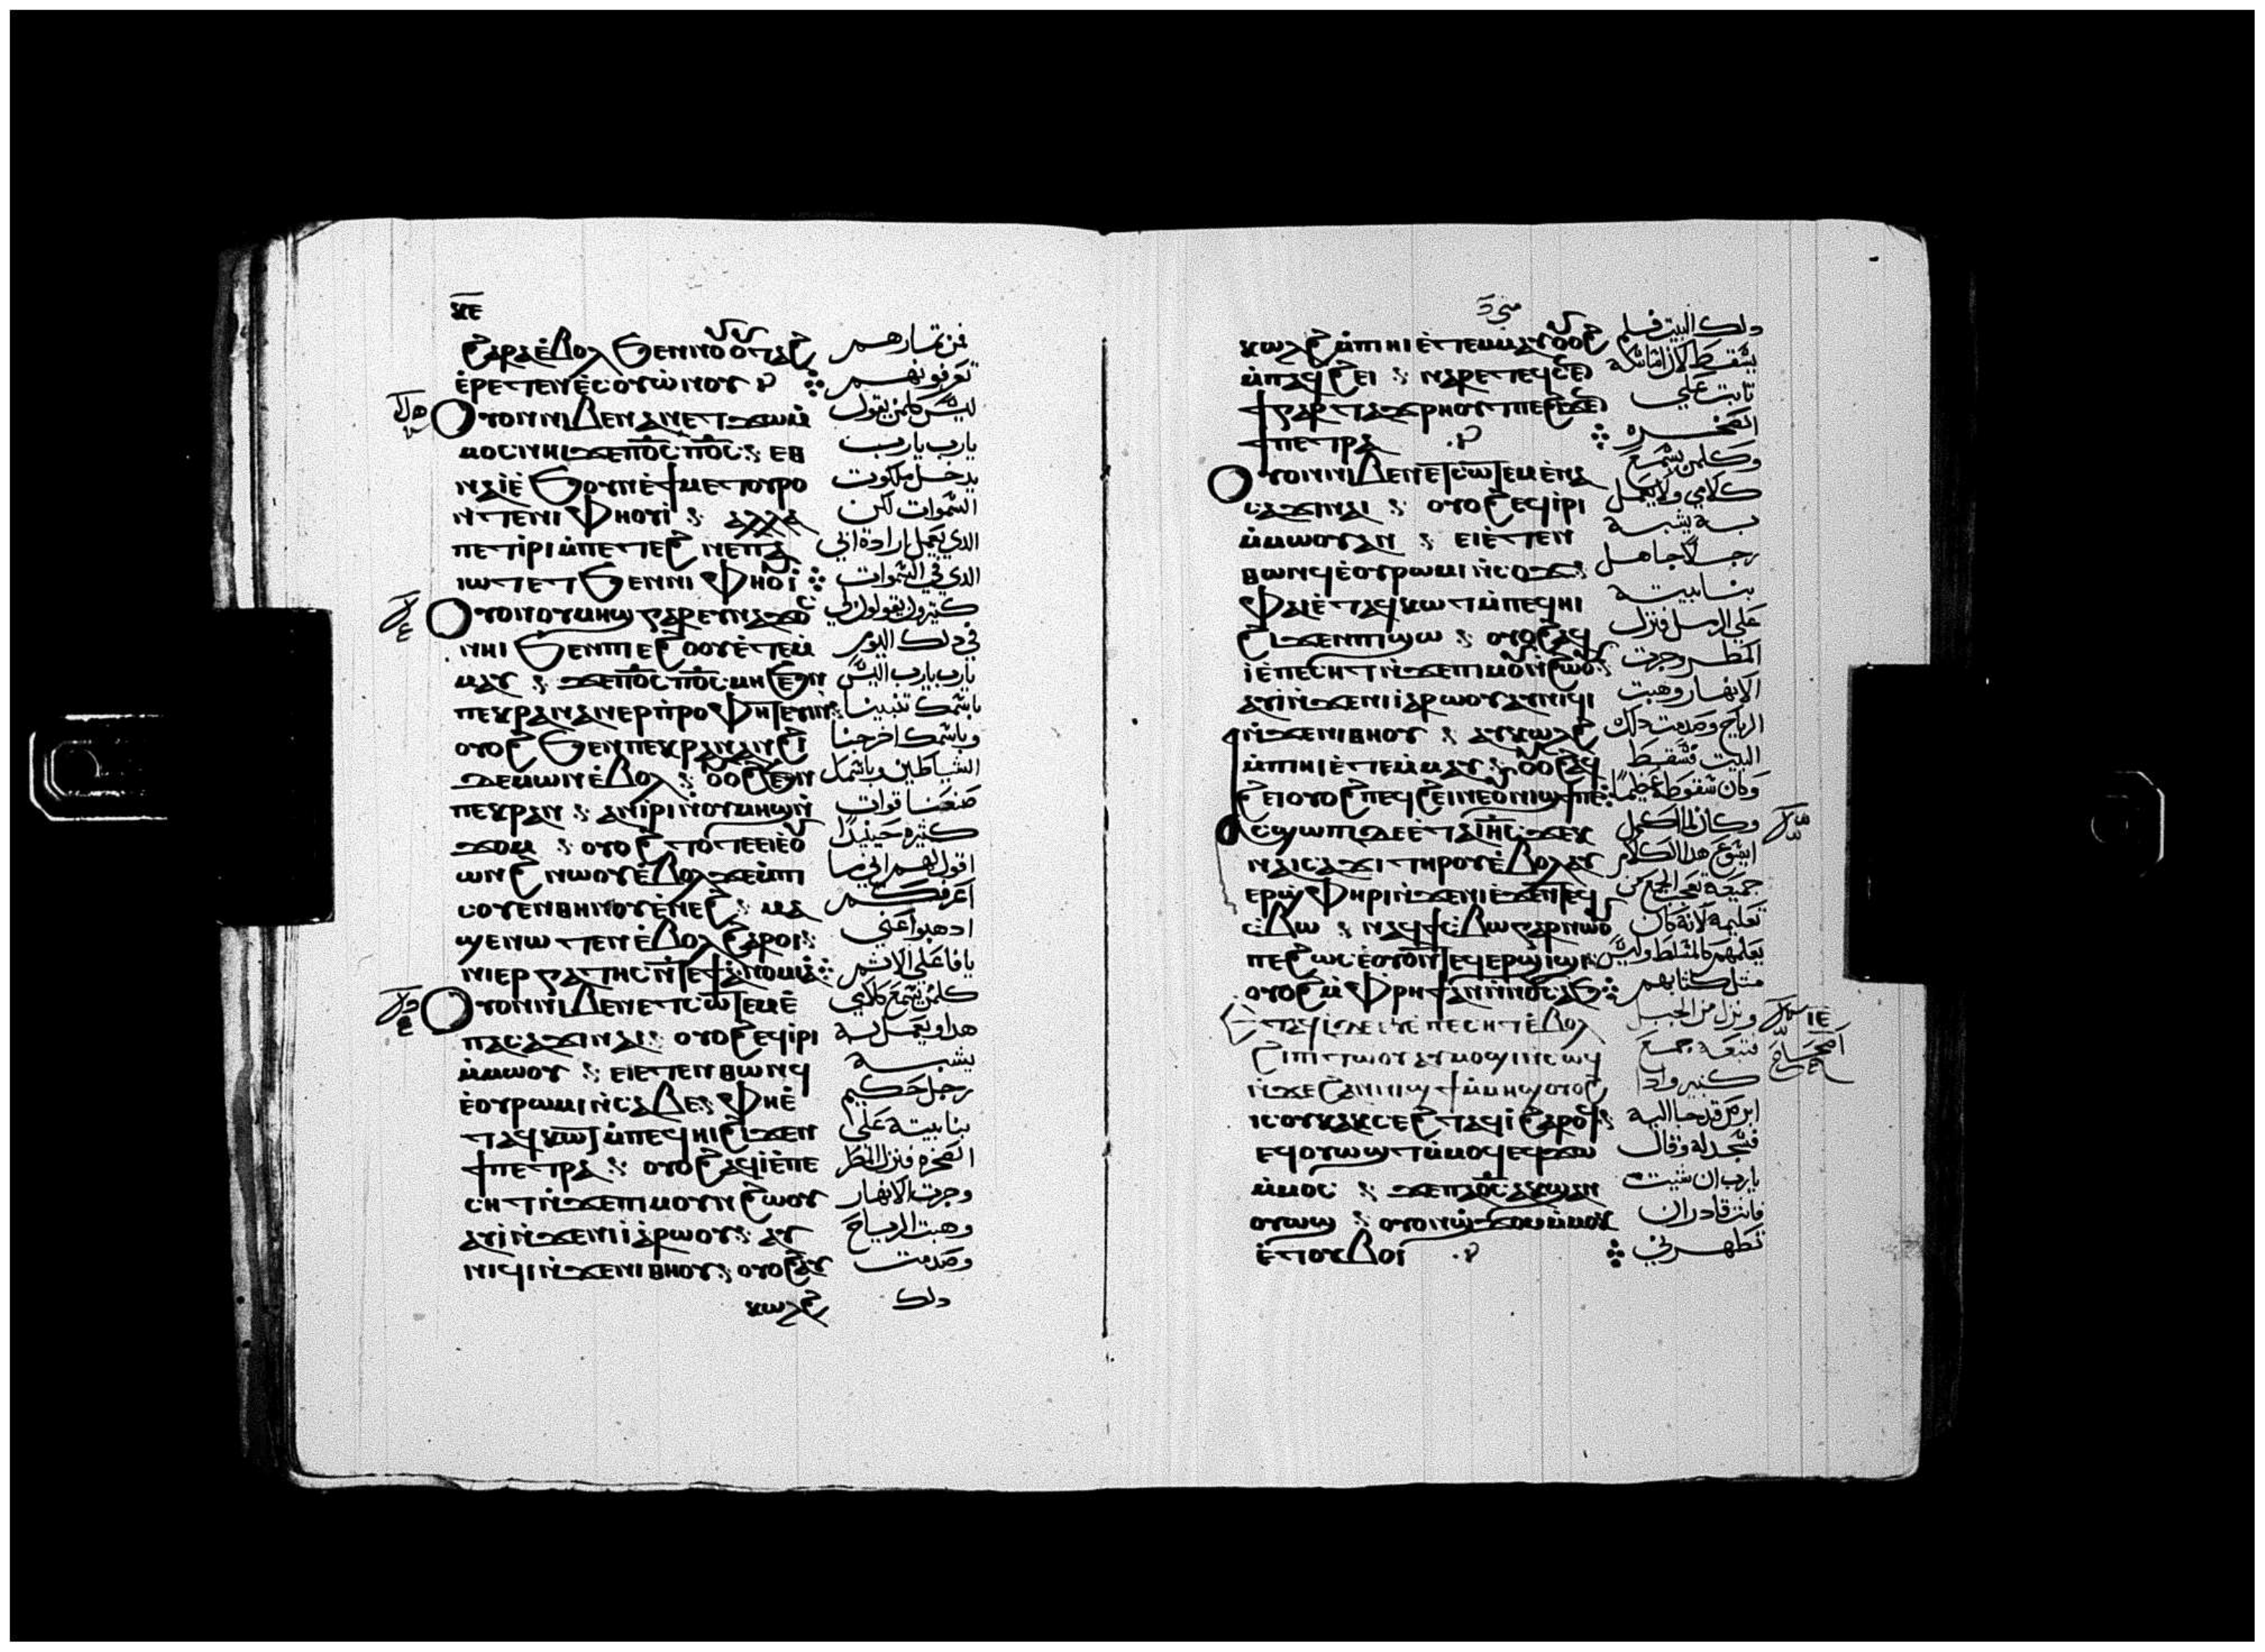 ⲝⲉ
ϩⲁⲣⲁ ⲉ̀ⲃⲟⲗ ϧⲉⲛ ⲛⲟⲩⲟⲩⲧⲁϩ
ⲉ̀ⲣⲉⲧⲉⲛⲉ̀ⲥⲟⲩⲱⲛⲟⲩ
ⲟⲩⲟⲛ ⲛⲓⲃⲉⲛ ⲁⲛ ⲉⲧϫⲱ ⲙ̀
ⲙⲟⲥ ⲛⲏⲓ ϫⲉ ⲡ̅ⲟ̅ⲥ̅ ⲡ̅ⲟ̅ⲥ̅ ⲉⲑ
ⲛⲁⲓ̀ ⲉ̀ϧⲟⲩⲛ ⲉ̀ϯⲙⲉⲧⲟⲩⲣⲟ
ⲛⲧⲉ ⲛⲓⲫⲏⲟⲩⲓ̀ ⲁⲗⲗⲁ
ⲡⲉⲧⲓ̀ⲣⲓ ⲙ̀ⲡⲉⲧⲉϩⲛⲉ ⲡⲁ
ⲓⲱⲧ ⲉⲧϧⲉⲛ ⲛⲓⲫⲏⲟⲩⲓ̀
ⲟⲩⲟⲛ ⲟⲩⲙⲏϣ ⲅⲁⲣ ⲉⲩⲛⲁϫⲟⲥ
ⲛⲏⲓ ϧⲉⲛ ⲡⲓⲉϩⲟⲟⲩ ⲉ̀ⲧⲉⲙ̀
ⲙⲁⲩ ϫⲉ ⲡ̅ⲟ̅ⲥ̅ ⲡ̅ⲟ̅ⲥ̅ ⲙⲏ ϧⲉⲛ
ⲡⲉⲕⲣⲁⲛ ⲁⲛⲉⲣⲡ̀ⲣⲟⲫⲏⲧⲉⲩⲓⲛ
ⲟⲩⲟϩ ϧⲉⲛ ⲡⲉⲕⲣⲁⲛ ⲁⲛϩⲓ
ⲇⲉⲙⲱⲛ ⲉ̀ⲃⲟⲗ ⲟⲩⲟϩ ϧⲉⲛ
ⲡⲉⲕⲣⲁⲛ ⲁⲛⲓ̀ⲣⲓ ⲛ̀ⲟⲩⲙⲏϣ ⲛ̀
ϫⲟⲙ ⲟⲩⲟϩ ⲧⲟⲧⲉ ⲉⲓⲉ̀ⲟⲩ
ⲱⲛϩ ⲛⲱⲟⲩ ⲉ̀ⲃⲟⲗ ϫⲉ ⲙ̀ⲡⲓ
ⲥⲟⲩⲉⲛ ⲑⲏⲛⲟⲩ ⲉ̀ⲛⲉϩ ⲙⲁ
ϣⲉⲛⲱⲧⲉⲛ ⲉ̀ⲃⲟⲗ ϩⲁⲣⲟⲓ
ⲛⲓⲉⲣⲅⲁⲧⲏⲥ ⲛ̀ⲧⲉ ϯⲁ̀ⲛⲟⲙⲓⲁ̀
ⲟⲩⲟⲛ ⲛⲓⲃⲉⲛ ⲉⲧⲥⲱⲧⲉⲙ ⲉ̀
ⲛⲁⲥⲁϫⲓ ⲛⲁⲓ ⲟⲩⲟϩ ⲉϥⲓ̀ⲣⲓ
ⲙ̀ⲙⲱⲟⲩ ⲉⲓⲉⲧⲉⲛⲑⲱⲛϥ
ⲉ̀ⲟⲩⲣⲱⲙⲓ ⲛ̀ⲥⲁⲃⲉ ⲫⲏ ⲉ̀
ⲧⲁϥⲕⲱⲧ ⲙ̀ⲡⲉϥⲏⲓ ϩⲓϫⲉⲛ
ϯⲡⲉⲧⲣⲁ ⲟⲩⲟϩ ⲁϥⲓ̀ ⲉ̀ⲡⲉ
ⲥⲏⲧ ⲛ̀ϫⲉ ⲡⲓⲙⲟⲩⲛϩⲱⲟⲩ
ⲁⲩⲓ̀ ⲛ̀ϫⲉ ⲛⲓⲓ̀ⲁⲣⲱⲟⲩ ⲁⲩ
ⲛⲓϥⲓ ⲛ̀ϫⲉ ⲛⲓⲑⲏⲟⲩ ⲟⲩⲟϩ ⲁⲩ
ⲕⲱⲗϩ
فمن ثمارهم
تعرفونهم
ليس كلمن يقول
يارب يارب
يدخل ملكوت
السموات لكن
الدي يعمل ارادة ابي
الدي في السموات
كثيرون يقولون لي
في دلك اليوم
يارب يارب اليس
باسمك تنبينا
وباسمك اخرجنا
الشياطين وباسمك
صنعنا قوات
كثيره حينيدًا
اقول لهم اني ما
اعرفكم
ادهبوا عني
يا فاعلي الاثم
كلمن يسمع كلامي
هدا ويعمل به
يشبه
رجل حكيم
بنا بيته علي
الصخره فنزل المطر
وجرت الانهار
وهبت الرياح
وصدمت
دلك
ⲕⲱⲗϩ ⲙ̀ⲡⲓⲏⲓ ⲉ̀ⲧⲉⲙⲙⲁⲩ ⲟⲩⲟϩ
ⲙ̀ⲡⲉϥϩⲉⲓ ⲛⲁⲣⲉ ⲧⲉϥⲥⲉⲛ
ϯ ⲅⲁⲣ ⲧⲁϫⲣⲏⲟⲩⲧ ⲡⲉ ϩⲓϫⲉⲛ
ϯⲡⲉⲧⲣⲁ
ⲟⲩⲟⲛ ⲛⲓⲃⲉⲛ ⲉⲧⲥⲱⲧⲉⲙ ⲉ̀ⲛⲁ
ⲥⲁϫⲓ ⲛⲁⲓ ⲟⲩⲟϩ ⲉϥⲓ̀ⲣⲓ
ⲙ̀ⲙⲱⲟⲩ ⲁⲛ ⲉⲓⲉ̀ⲧⲉⲛ
ⲑⲱⲛϥ ⲉ̀ⲟⲩⲣⲱⲙⲓ ⲛ̀ⲥⲟϫ
ⲫⲁⲓ ⲉ̀ⲧⲁϥⲕⲱⲧ ⲙ̀ⲡⲉϥⲏⲓ
ϩⲓϫⲉⲛ ⲡⲓϣⲱ ⲟⲩⲟϩ ⲁϥ
ⲓ̀ ⲉ̀ⲡⲉⲥⲏⲧ ⲛ̀ϫⲉ ⲡⲓⲙⲟⲩⲛϩⲱⲟⲩ
ⲁⲩⲓ̀ ⲛ̀ϫⲉ ⲛⲓⲓ̀ⲁⲣⲱⲟⲩ ⲁⲩⲛⲓϥⲓ
ⲛ̀ϫⲉ ⲛⲓⲑⲏⲟⲩ ⲁⲩⲕⲱⲗϩ
ⲙ̀ⲡⲓⲏⲓ ⲉ̀ⲧⲉⲙ̀ⲙⲁⲩ ⲟⲩⲟϩ ⲁϥ
ϩⲉⲓ ⲟⲩⲟϩ ⲡⲉϥϩⲉⲓ ⲛⲉ ⲟⲩⲛⲓϣϯ ⲡⲉ
ⲁⲥϣⲱⲡⲓ ⲇⲉ ⲉ̀ⲧⲁ ⲓ̅ⲏ̅ⲥ̅ ϫⲉⲕ
ⲛⲁⲓⲥⲁϫⲓ ⲧⲏⲣⲟⲩ ⲉ̀ⲃⲟⲗ ⲁⲩ
ⲉⲣϣ̀ⲫⲏⲣⲓ ⲛ̀ϫⲉ ⲛⲓ ⲉ̀ϫⲉⲛ ⲧⲉϥ
ⲥ̀ⲃⲱ ⲛⲁϥϯⲥ̀ⲃⲱ ⲅⲁⲣ ⲛⲱⲟⲩ
ⲡⲉ ϩⲱⲥ ⲉ̀ⲟⲩⲟⲛⲧⲉϥ ⲉⲣϣⲓϣⲓ
ⲟⲩⲟϩ ⲙ̀ⲫⲣⲏϯ ⲁⲛ ⲛ̀ⲛⲟⲩⲥⲁϧ
ⲉⲧⲁϥⲓ̀ ⲇⲉ ⲉ̀ⲡⲉⲥⲏⲧ ⲉ̀ⲃⲟⲗ
ϩⲓ ⲡⲓⲧⲱⲟⲩ ⲁⲩⲙⲟϣⲓ ⲛ̀ⲥⲱϥ
ⲛ̀ϫⲉ ϩⲁⲛⲛⲓϣϯ ⲙ̀ⲙⲏϣ ⲟⲩⲟϩ
ⲓⲥ ⲟⲩⲕⲁⲕⲥⲉϩⲧ ⲁϥⲓ̀ ϩⲁⲣⲟϥ
ⲉϥⲟⲩⲱϣⲧ ⲙ̀ⲙⲟϥ ⲉϥϫⲱ
ⲙ̀ⲙⲟⲥ ϫⲉ ⲡⲁ̅ⲟ̅ⲥ̅ ⲁⲕϣⲁⲛ
ⲟⲩⲱϣ ⲟⲩⲟⲛ ϣ̀ϫⲟⲙ ⲙ̀ⲙⲟⲕ
ⲉ̀ⲧⲟⲩⲃⲟⲓ̀
دلك البيت فلم
يسقط لان اساسه
ثابت علي
الصخره
وكلمن يسمع
كلامي ولا يعمل
به يشبه
رجلًا جاهل
بنا بيته
علي الرمل فنزل
المطر وجرت
الانهار وهبت
الرياح وصدمت دلك
البيت فسقط
وكان سقوطه عظيمًا
وكان لما اكمل
ايسوع هدا الكلام
جميعه تعجب الجمع من
تعليمه لانه كان
يعلمهم كالمسلط وليس
مثل كتابهم
ونزل من الجبل
فتبعه جمع
كثير وادا
ابرص قد جا اليه
فسجد له وقال
يارب ان شيت
فانت قادر ان
تطهرني
ⲓⲉ